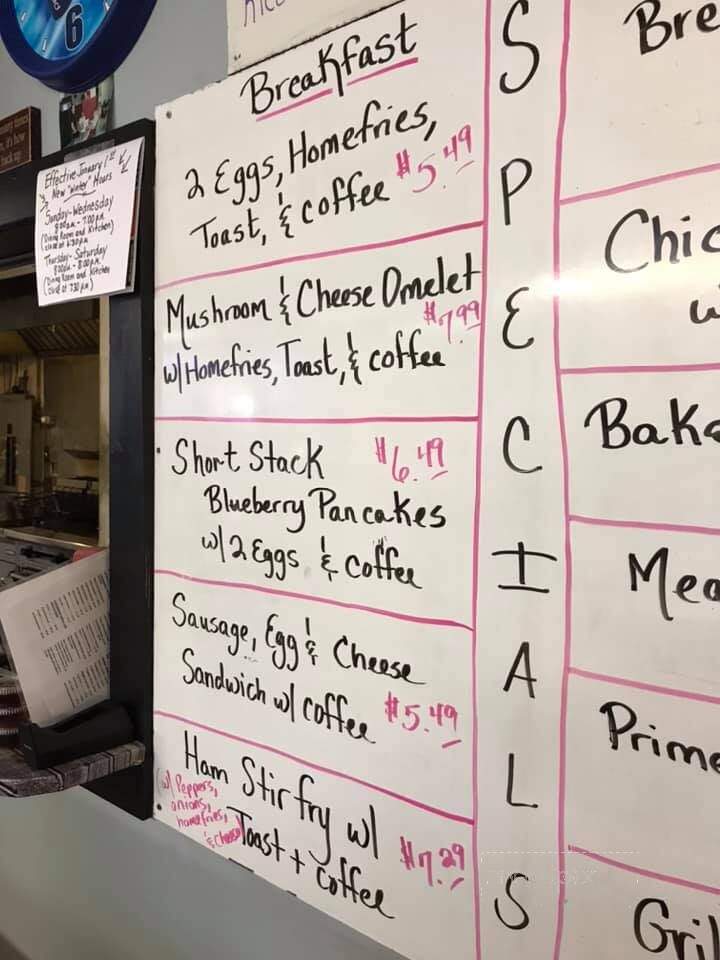 6
Effective January 1st
New "Winter" Hours
Sunday-Wednesday
8:00am - 7:00pm
(Dining Room and Kitchen)
close at 6:30pm
Thursday-Saturday
8:00am - 8:00pm
(Dining Room and Kitchen
close at 7:30pm)
Breakfast
2 Eggs, Homefries,
Toast, & coffee $5.49
Mushroom & Cheese Omelet
$7.99
w/Homefries, Toast, & coffee
Short Stack $6.49
Blueberry Pancakes
w/2 Eggs & coffee
Sausage, Egg & Cheese
Sandwich w/ coffee $5.49
Ham Stir fry w/
(w/ Peppers,
onions,
homefries,
& cheese)
Toast + coffee
$7.29
SPECIALS
Bre
Chic
w
Bake
Mea
Prime
Gril